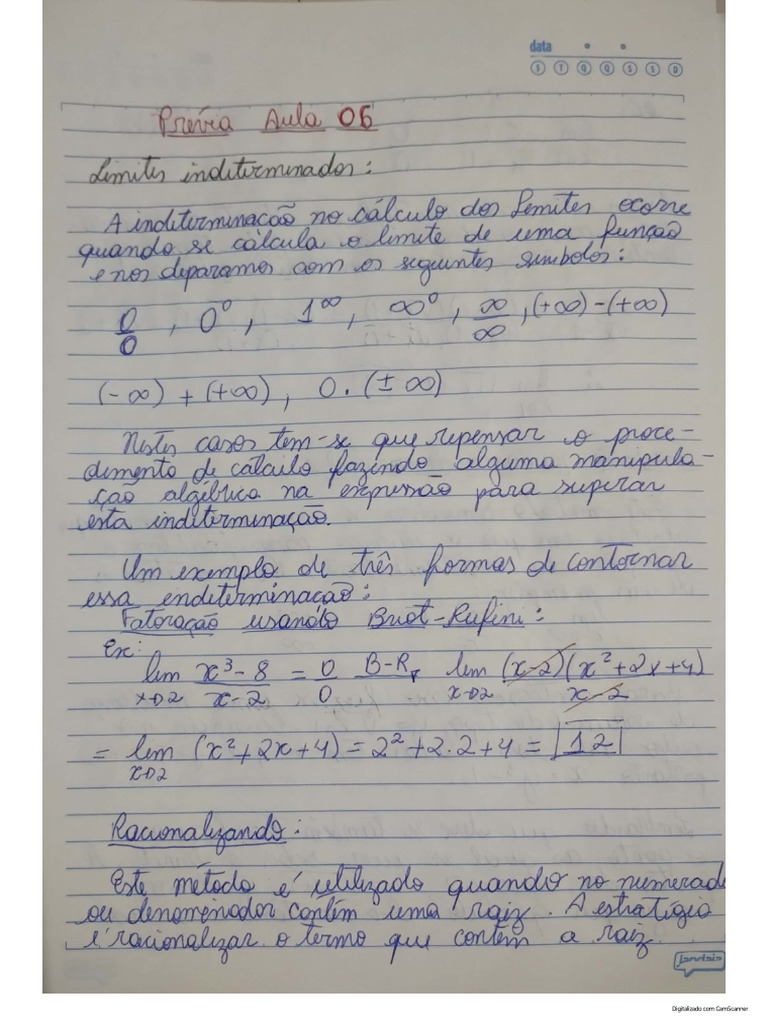 data
S T Q Q S S D
Prévia Aula 06
Limites indeterminados:
A indeterminação no cálculo dos Limites ocorre
quando se cálcula o limite de uma função
e nos deparamos com os seguintes símbolos:
0/0 , 0⁰ , 1^∞ , ∞⁰ , ∞/∞ , (+∞)-(+∞)
(-∞) + (+∞) , 0 . (± ∞)
Nestes casos tem-se que repensar o proce-
dimento de cálculo fazendo alguma manipula-
ção algébrica na expressão para superar
esta indeterminação.
Um exemplo de três formas de contornar
essa endeterminação:
Fatoração usando Briot-Rufini:
Ex:
lim x→2 (x³-8)/(x-2) = 0/0 B-R→ lim x→2 (x-2)(x²+2x+4)/(x-2)
= lim x→2 (x²+2x+4) = 2²+2.2+4 = 12
Racionalizando:
Este método é utilizado quando no numerad
ou denominador contém uma raiz. A estratégia
é racionalizar o termo que contém a raiz.
jandaia
Digitalizado com CamScanner